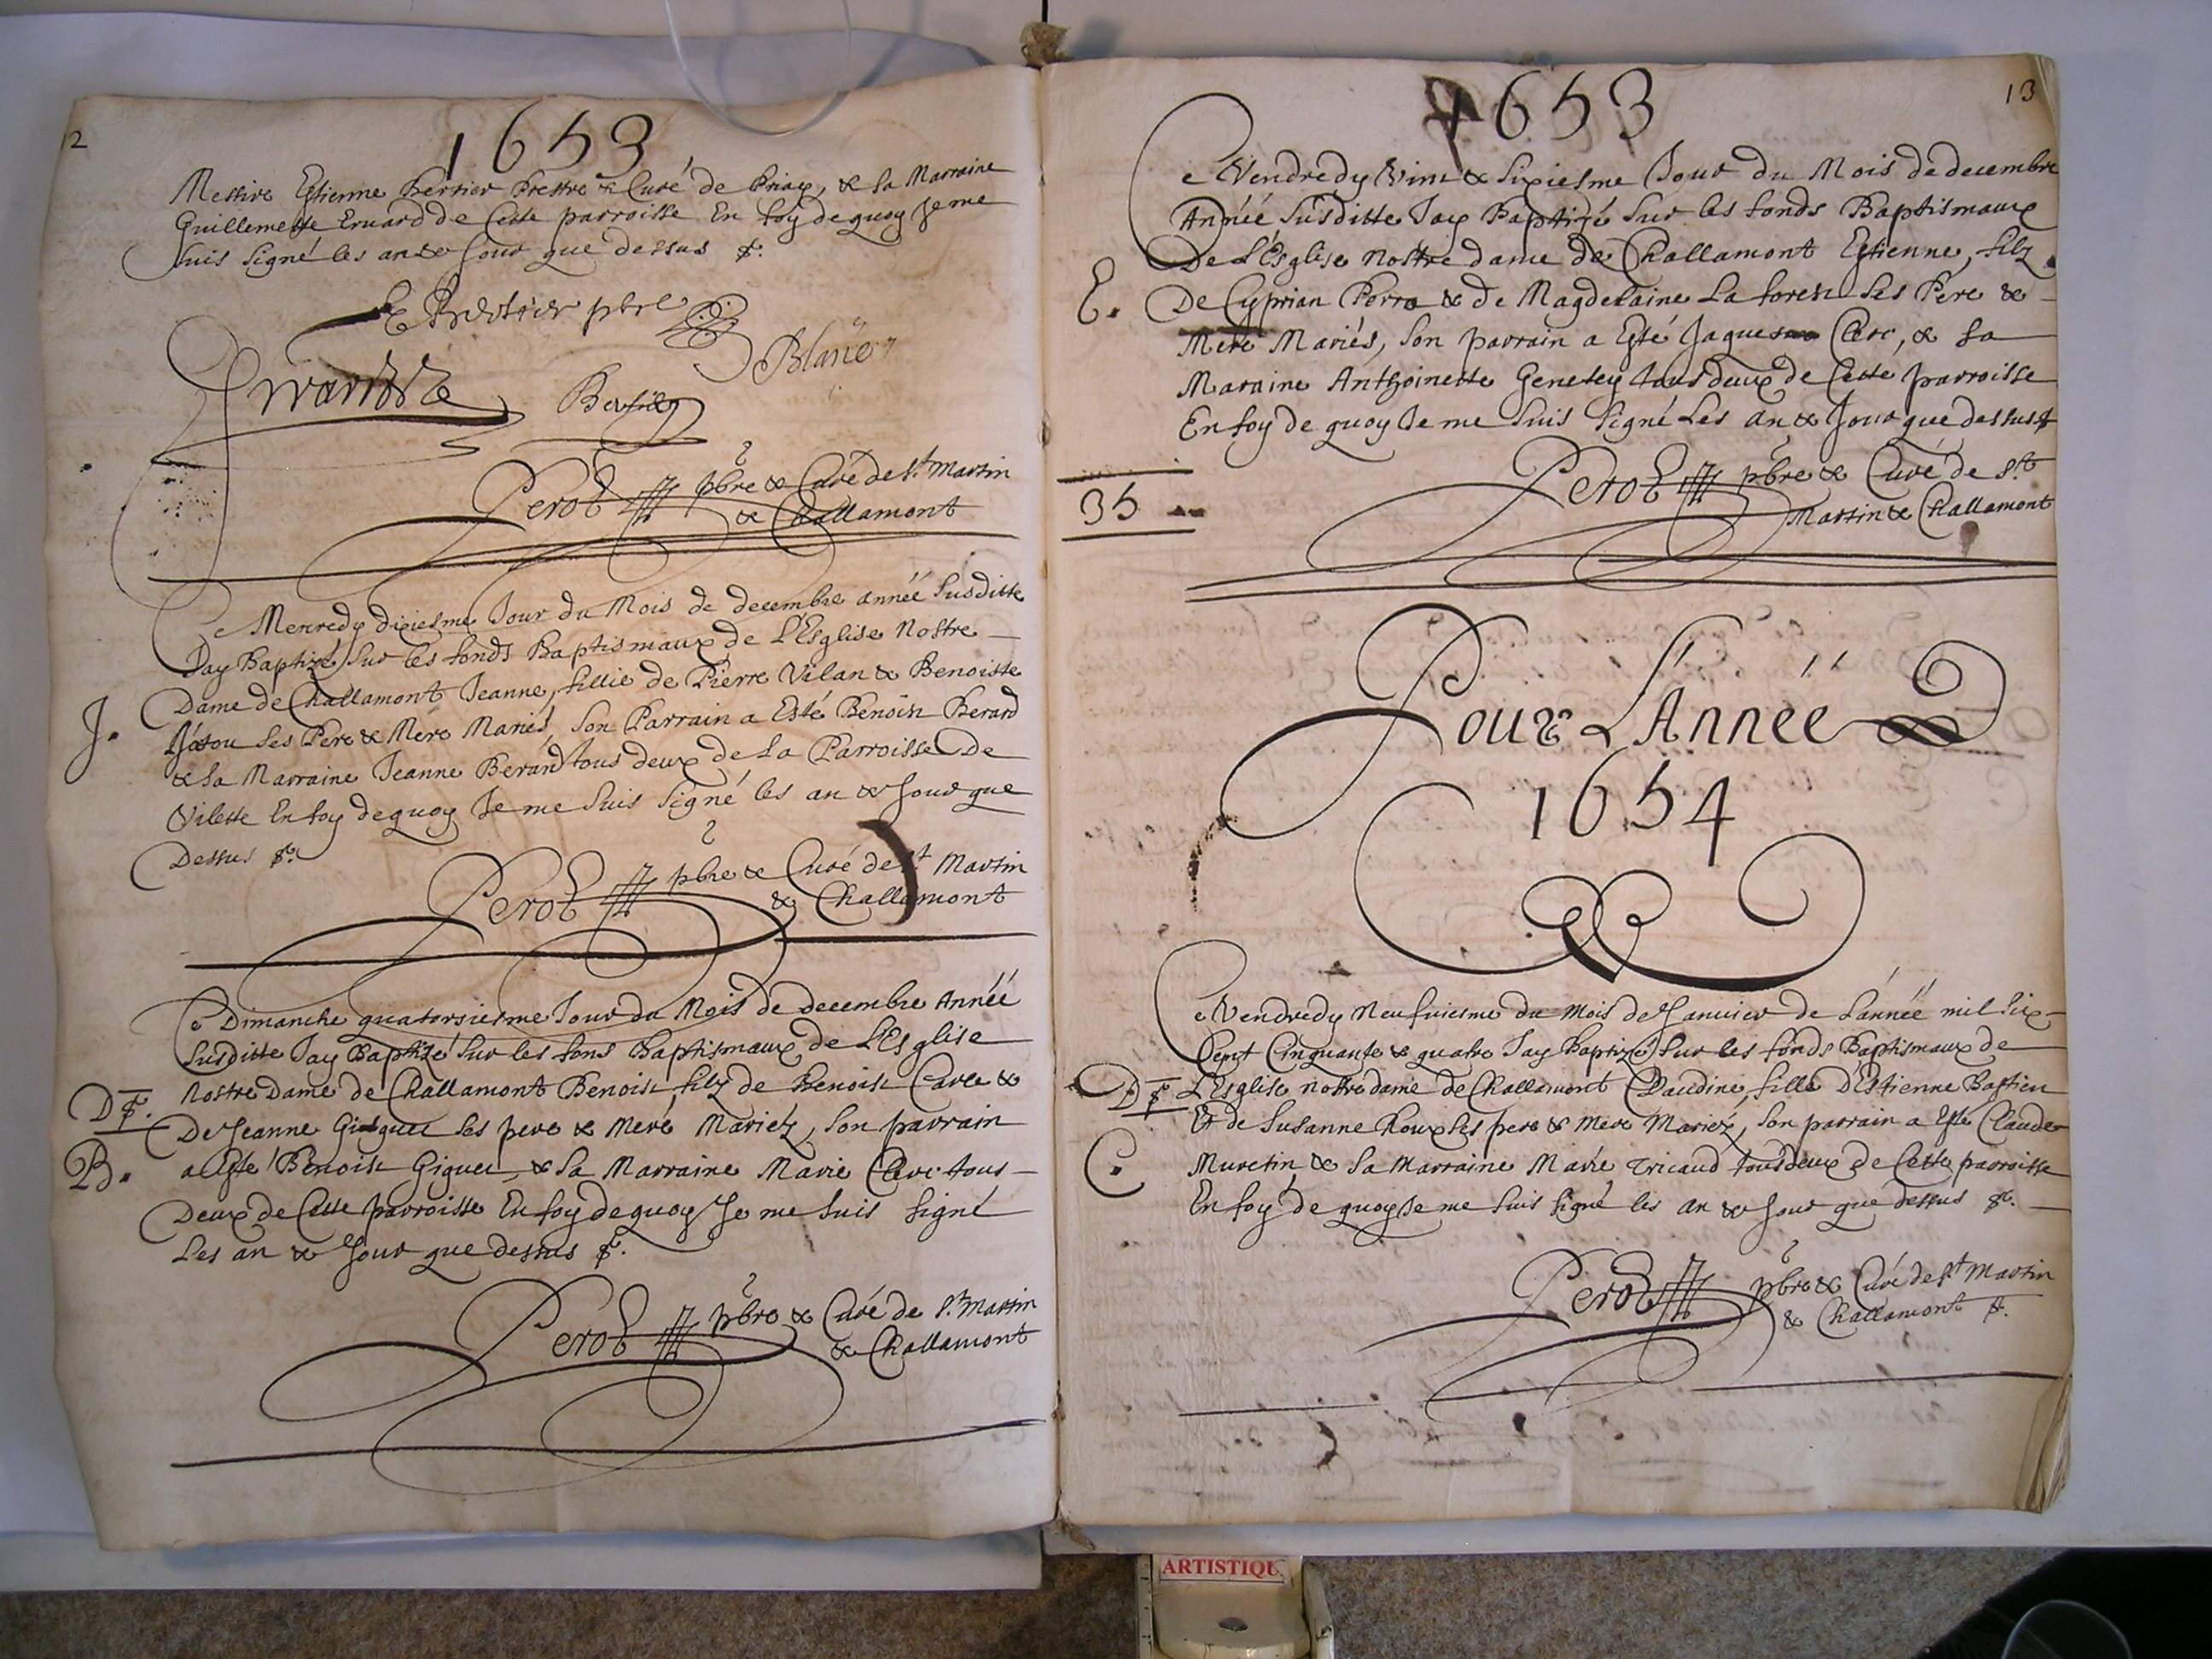 12
1653
Messire Estienne Bersier Prestre & Curé de Priay, & sa Marraine
Guillemette Evuard de Cette parroisse En foy de quoy Je me
suis signé les an & Jour que dessus &.
pbre
Blanc
Perot pbre & Curé de St. Martin
& Challamont
Ce Mercredy dixiesme Jour du Mois de decembre année susditte
Jay Baptizé sur les fonds Baptismaux de L'Esglise Nostre
J.
Dame de Challamont Jeanne, fillie de Pierre Vilan & Benoiste
ses Pere & Mere Mariés, son Parrain a Esté Benoist Berard
& sa Marraine Jeanne Berard tous deux de la Parroisse De
Vilette En foy de quoy Je me suis signé les an & Jour que
Dessus &.
Perot pbre & Curé de St. Martin
& Challamont
Ce Dimanche quatorsiesme Jour du Mois de decembre Année
susditte Jay Baptizé sur les fons Baptismaux de L'Esglise
D
Nostre Dame de Challamont Benoist, filz de Benoist &
De Jeanne Giguet ses pere & Mere Mariéz, son parrain
B.
a Esté Benoist Giguet, & sa Marraine Marie Clerc tous
Deux de Cette parroisse En foy de quoy Je me suis signé
Les an & Jour que dessus &.
Perot pbre & Curé de St. Martin
& Challamont
13
1653
Ce Vendredy Vint & sixiesme Jour du Mois de decembre
Année susditte Jay Baptizé sur les fonds Baptismaux
De L'Esglise Nostre dame de Challamont Estienne, filz
E.
De Cyprian Perra & de Magdelaine La forest ses Pere &
Mere Mariés, son parrain a Esté Jaques Clerc, & sa
Maraine Anthoinette Genetey tous deux de Cette parroisse
En foy de quoy Je me suis signé Les an & Jour que dessus &
35
Perot pbre & Curé de St.
Martin & Challamont
Pour L'Année
1654
Ce Vendredy Neufviesme du Mois de Janvier de L'année mil six
Cent Cinquante & quatre Jay Baptizé sur les fonds Baptismaux de
D
L'Esglise nostre dame de Challamont Claudine, fille D'Estienne Bastien
Et de Susanne Roux ses pere & Mere Mariéz, son parrain a Esté Claude
C.
Muretin & sa Marraine Marie Tricaud tous deux de Cette parroisse
En foy de quoy Je me suis signé les an & Jour que dessus &.
Perot pbre & Curé de St. Martin
& Challamont &.
ARTISTIQU